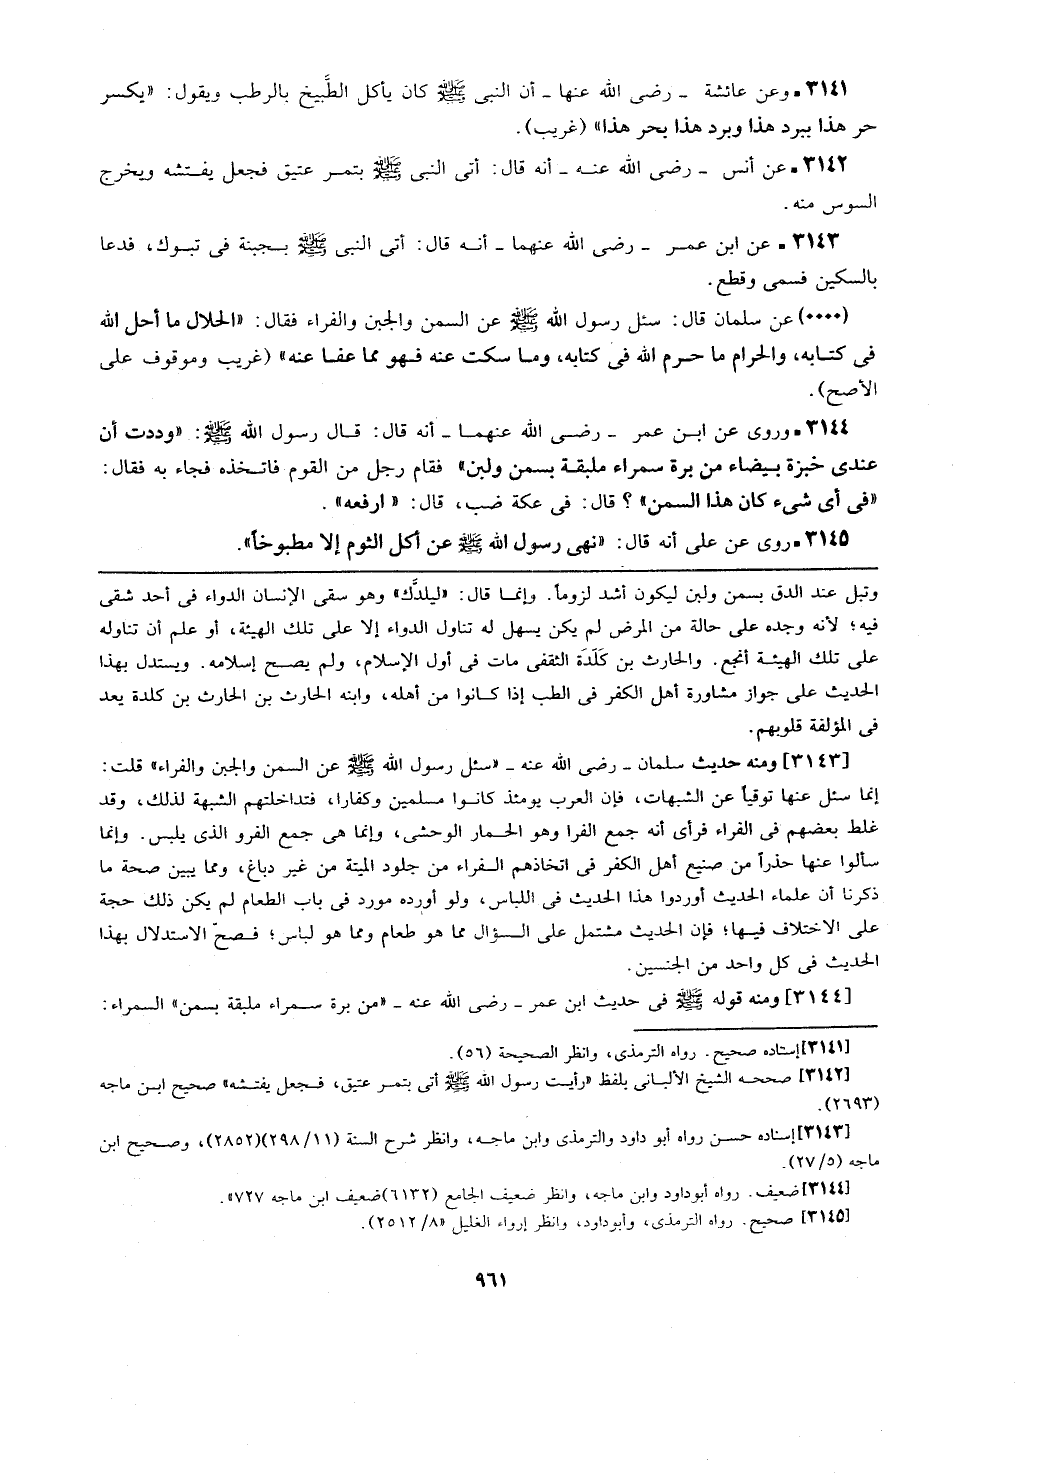 ٣١٤١ـ وعن عائشة ـ رضى الله عنها ـ أن النبى ﷺ كان يأكل الطَّبيخ بالرطب ويقول: «يكسر
حر هذا ببرد هذا وبرد هذا بحر هذا» (غريب).
٣١٤٢ـ عن أنس ـ رضى الله عنه ـ أنه قال: أتى النبى ﷺ بتمر عتيق فجعل يفتشه ويخرج
السوس منه.
٣١٤٣ـ عن ابن عمر ـ رضى الله عنهما ـ أنه قال: أتى النبى ﷺ بجبنة فى تبوك، فدعا
بالسكين فسمى وقطع.
(٠٠٠٠) عن سلمان قال: سئل رسول الله ﷺ عن السمن والجبن والفراء فقال: «الحلال ما أحل الله
فى كتابه، والحرام ما حرم الله فى كتابه، وما سكت عنه فهو مما عفا عنه» (غريب وموقوف على
الأصح).
٣١٤٤ـ وروى عن ابن عمر ـ رضى الله عنهما ـ أنه قال: قال رسول الله ﷺ: «وددت أن
عندى خبزة بيضاء من برة سمراء ملبقة بسمن ولبن» فقام رجل من القوم فاتخذه فجاء به فقال:
«فى أى شىء كان هذا السمن» ؟ قال: فى عكة ضب، قال: « ارفعه» .
٣١٤٥ـ روى عن على أنه قال: «نهى رسول الله ﷺ عن أكل الثوم إلا مطبوخاً».
وتبل عند الدق بسمن ولبن ليكون أشد لزوماً. وإنما قال: «ليلدَّك» وهو سقى الإنسان الدواء فى أحد شقى
فيه؛ لأنه وجده على حالة من المرض لم يكن يسهل له تناول الدواء إلا على تلك الهيئة، أو علم أن تناوله
على تلك الهيئة أنجع. والحارث بن كَلَدَة الثقفى مات فى أول الإسلام، ولم يصح إسلامه. ويستدل بهذا
الحديث على جواز مشاورة أهل الكفر فى الطب إذا كانوا من أهله، وابنه الحارث بن الحارث بن كلدة يعد
فى المؤلفة قلوبهم.
[٣١٤٣] ومنه حديث سلمان ـ رضى الله عنه ـ «سئل رسول الله ﷺ عن السمن والجبن والفراء» قلت:
إنما سئل عنها توقياً عن الشبهات، فإن العرب يومئذ كانوا مسلمين وكفارا، فتداخلتهم الشبهة لذلك، وقد
غلط بعضهم فى الفراء فرأى أنه جمع الفرا وهو الحمار الوحشى، وإنما هى جمع الفرو الذى يلبس. وإنما
سألوا عنها حذراً من صنيع أهل الكفر فى اتخاذهم الفراء من جلود الميتة من غير دباغ، ومما يبين صحة ما
ذكرنا أن علماء الحديث أوردوا هذا الحديث فى اللباس، ولو أورده مورد فى باب الطعام لم يكن ذلك حجة
على الاختلاف فيها؛ فإن الحديث مشتمل على السؤال مما هو طعام ومما هو لباس؛ فصحّ الاستدلال بهذا
الحديث فى كل واحد من الجنسين.
[٣١٤٤] ومنه قوله ﷺ فى حديث ابن عمر ـ رضى الله عنه ـ «من برة سمراء ملبقة بسمن» السمراء:
[٣١٤١] إسناده صحيح. رواه الترمذى، وانظر الصحيحة (٥٦).
[٣١٤٢] صححه الشيخ الألبانى بلفظ «رأيت رسول الله ﷺ أتى بتمر عتيق، فجعل يفتشه» صحيح ابن ماجه
(٢٦٩٣).
[٣١٤٣] إسناده حسن رواه أبو داود والترمذى وابن ماجه، وانظر شرح السنة (٢٩٨/١١)(٢٨٥٢)، وصحيح ابن
ماجه (٢٧/٥).
[٣١٤٤] ضعيف. رواه أبوداود وابن ماجه، وانظر ضعيف الجامع (٦١٣٢)ضعيف ابن ماجه ٧٢٧».
[٣١٤٥] صحيح. رواه الترمذى، وأبوداود، وانظر إرواء الغليل «٢٥١٢/٨).
٩٦١